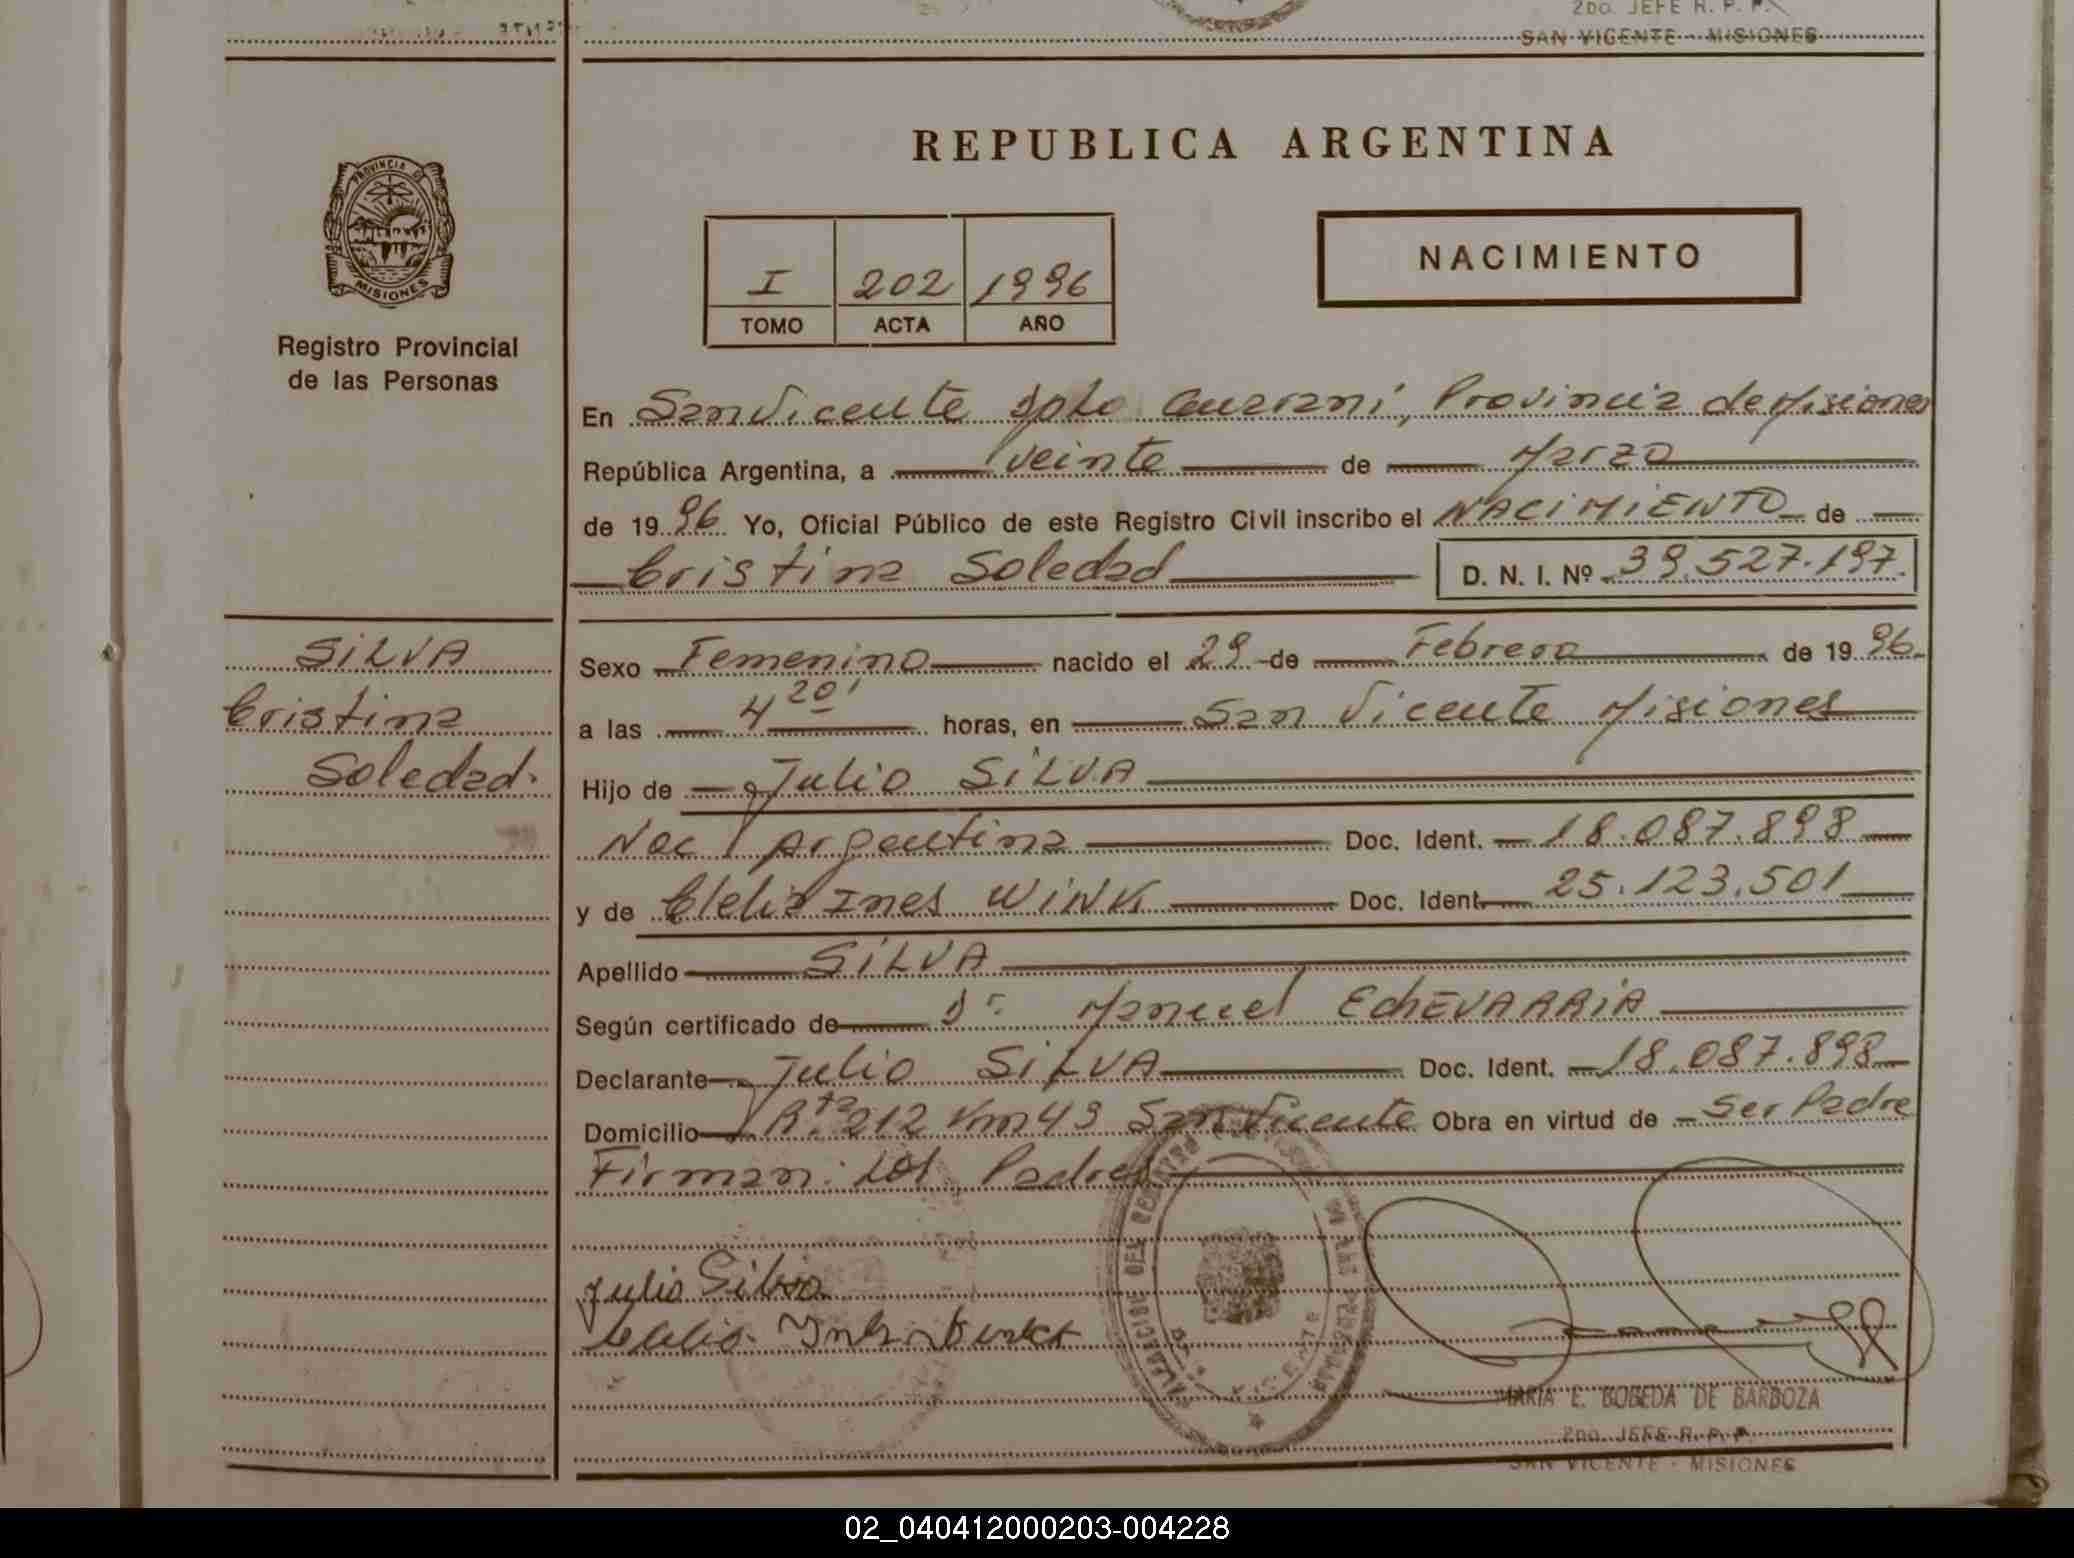 2DO. JEFE R. P. P.
SAN VICENTE - MISIONES
REPUBLICA ARGENTINA
PROVINCIA DE
MISIONES
Registro Provincial
de las Personas
I 202 1996
TOMO ACTA AÑO
NACIMIENTO
En San Vicente Dpto Guarani, Provincia de Misiones
República Argentina, a veinte de Marzo
de 1996 Yo, Oficial Público de este Registro Civil inscribo el NACIMIENTO de
Cristina Soledad D. N. I. Nº 39.527.197.
SILVA
Cristina
Soledad.
Sexo Femenino nacido el 29 de Febrero de 1996
a las 4 20' horas, en San Vicente Misiones
Hijo de Julio SILVA
Nac Argentina Doc. Ident. 18.087.898
y de Clelia Ines WINK Doc. Ident. 25.123.501
Apellido SILVA
Según certificado de Dr. Manuel ECHEVARRIA
Declarante Julio SILVA Doc. Ident. 18.087.898
Domicilio Rta. 212 Km 43 San Vicente Obra en virtud de Ser Padre
Firman: Los Padres
Julio Silva
Clelia
MARIA E. BOBEDA DE BARBOZA
2DO. JEFE R. P. P.
SAN VICENTE - MISIONES
02_040412000203-004228